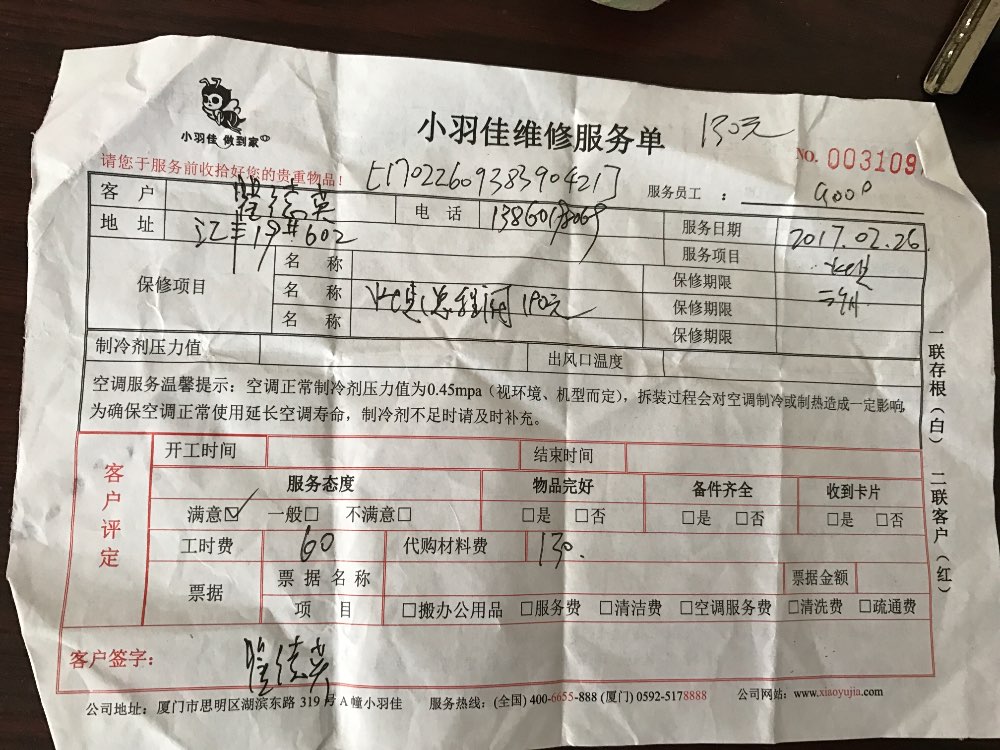 小羽佳 做到家
小羽佳维修服务单 130元
NO. 003109
请您于服务前收拾好您的贵重物品！ [1702260938390421] 服务员工：
客户 电话
地址 19#602 服务日期 2017.02.26
服务项目
保修项目 名称 保修期限
名称 保修期限
名称 保修期限
制冷剂压力值 出风口温度
空调服务温馨提示：空调正常制冷剂压力值为0.45mpa（视环境、机型而定），拆装过程会对空调制冷或制热造成一定影响，
为确保空调正常使用延长空调寿命，制冷剂不足时请及时补充。
一联存根（白） 二联客户（红）
客户评定
开工时间 结束时间
服务态度 物品完好 备件齐全 收到卡片
满意☑ 一般□ 不满意□ □是 □否 □是 □否 □是 □否
工时费 60 代购材料费 130.
票据 票据名称 票据金额
项目 □搬办公用品 □服务费 □清洁费 □空调服务费 □清洗费 □疏通费
客户签字：
公司地址：厦门市思明区湖滨东路 319 号 A 幢小羽佳 服务热线：(全国) 400-6655-888 (厦门) 0592-5178888 公司网站：www.xiaoyujia.com